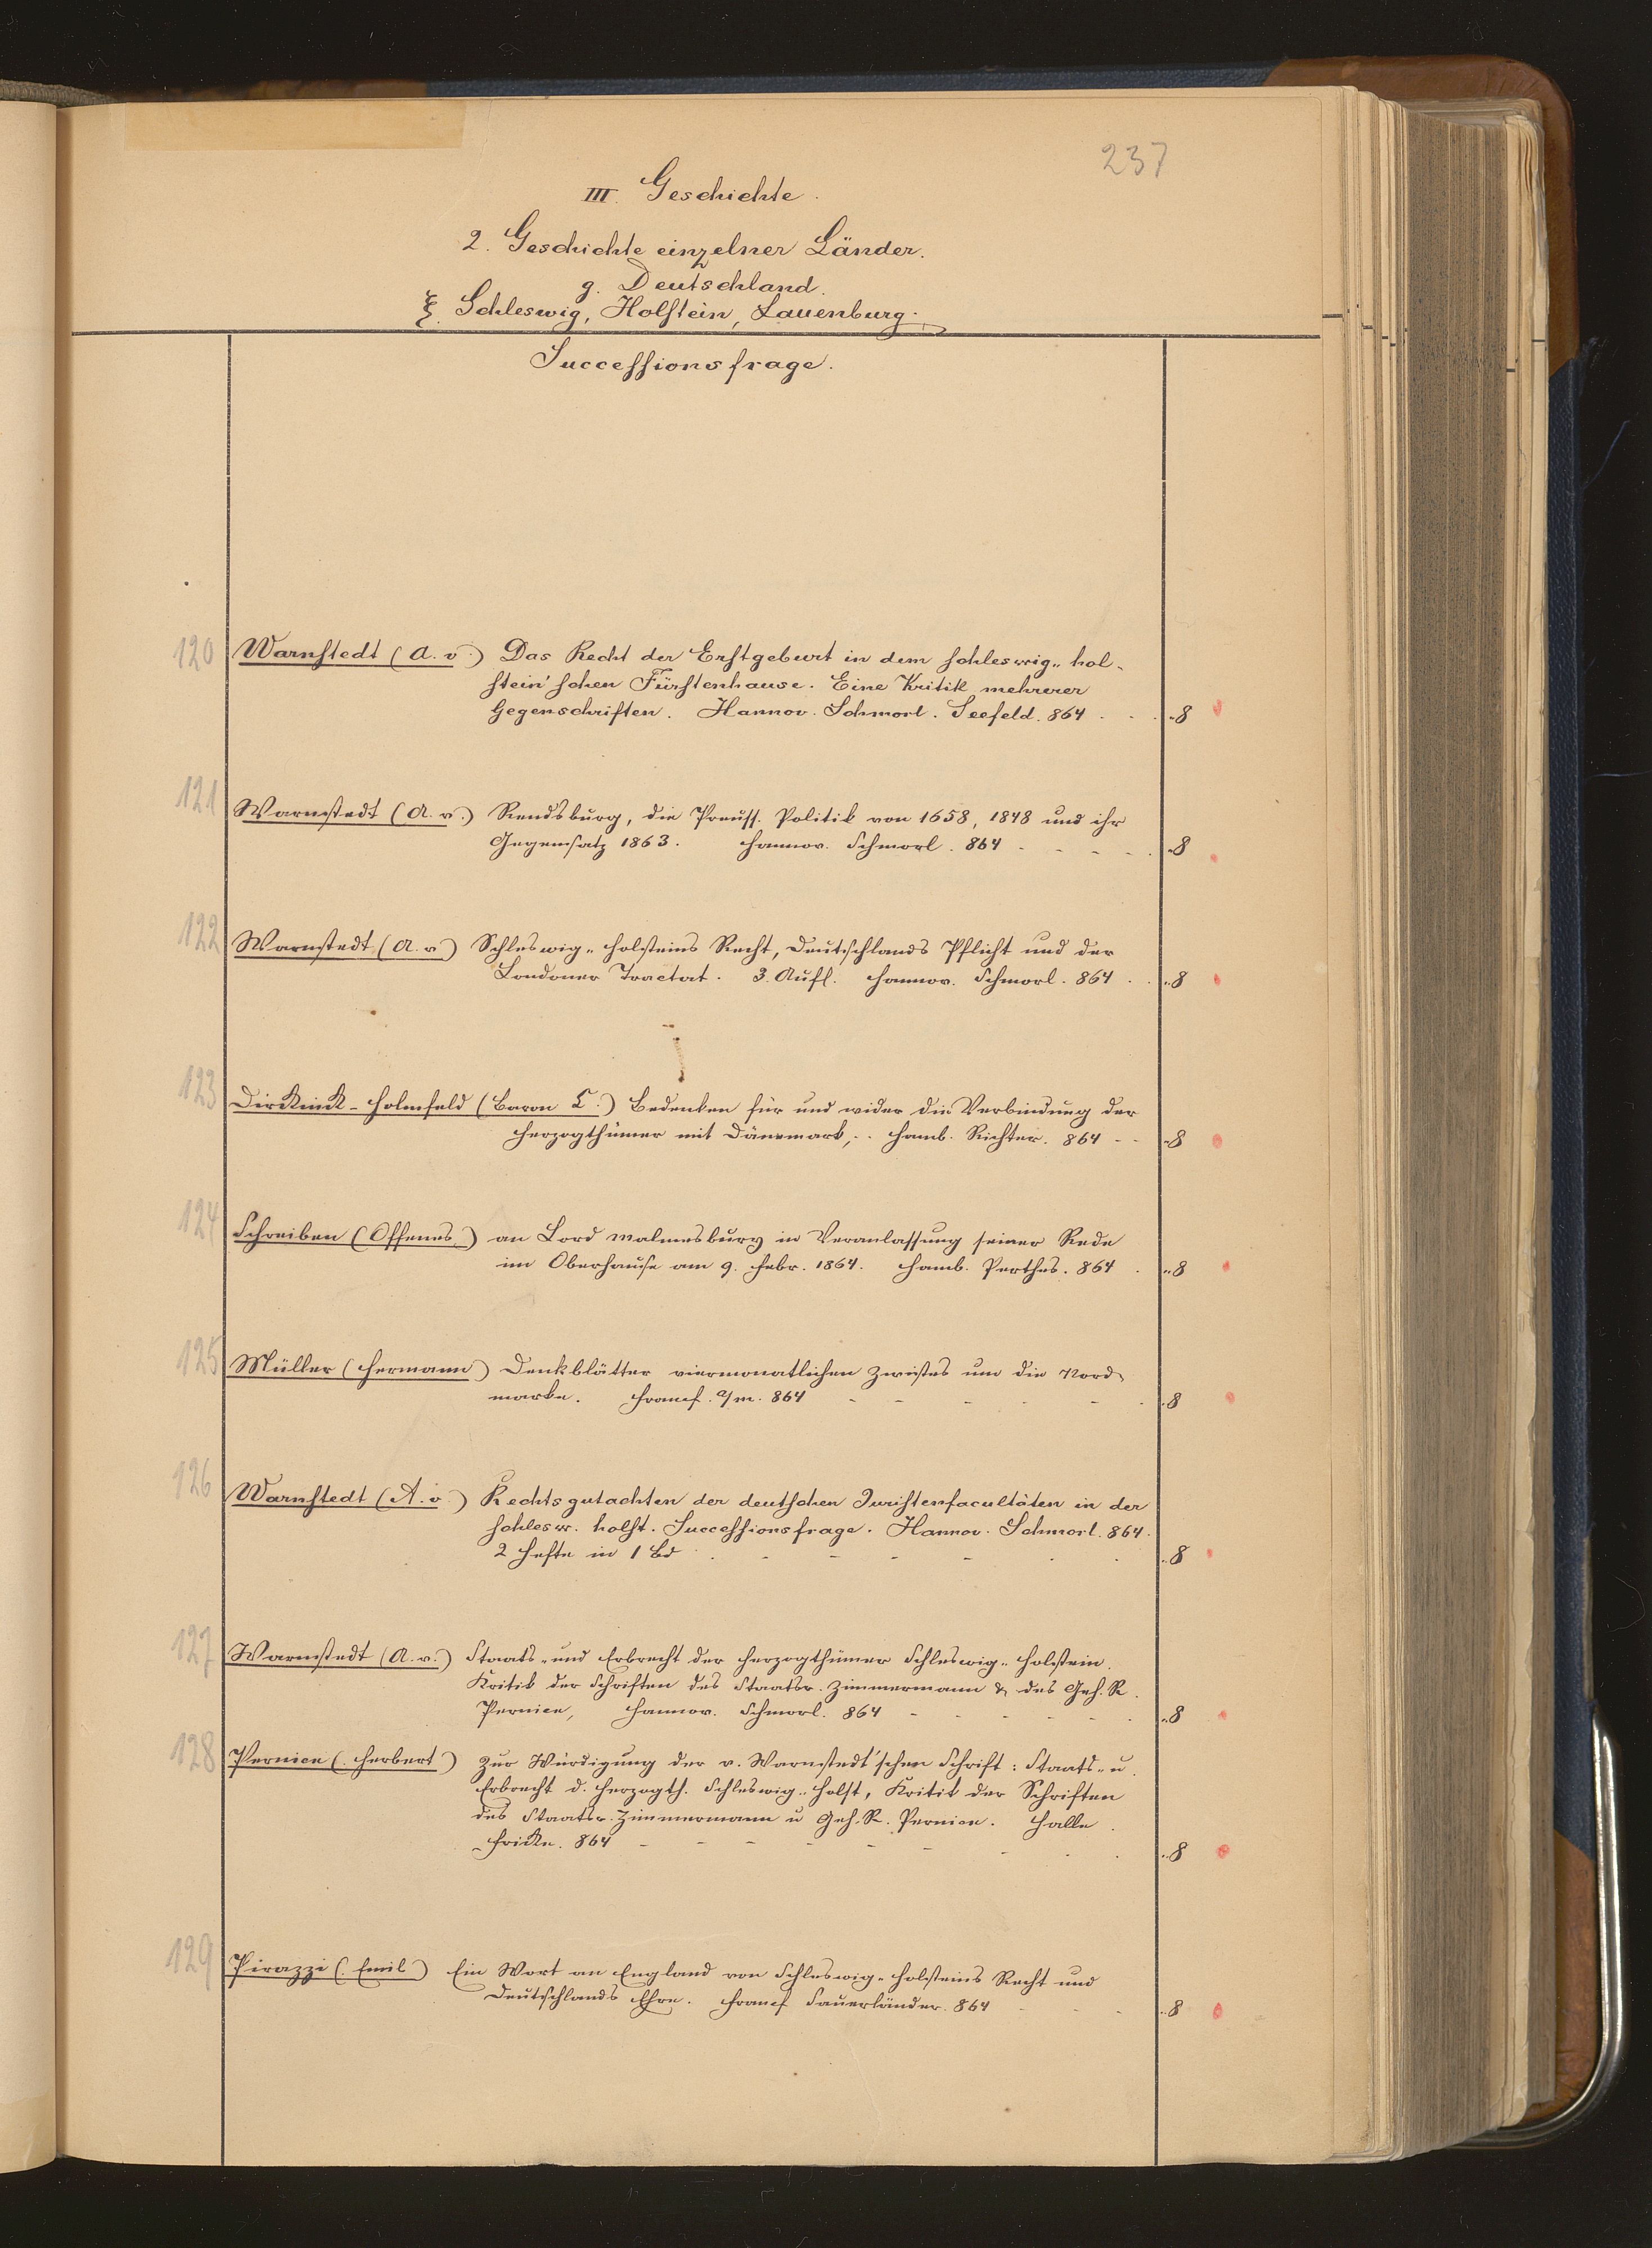 237
III. Geschichte.
2. Geschichte einzelner Länder.
g. Deutschland.
ξ. Schleswig, Holstein, Lauenburg.
Successionsfrage.
120 Warnstedt (A. v.) Das Recht der Erstgeburt in dem schleswig-hol-
stein'schen Fürstenhause. Eine Kritik mehrerer
Gegenschriften. Hannov. Schmorl. Seefeld. 864 . . . 8
121 Warnstedt (A. v.) Rendsburg, die Preuss. Politik von 1658, 1848 und ihr
Gegensatz 1863. Hannov. Schmorl. 864 - - - - . 8
122 Warnstedt (A. v.) Schleswig-Holsteins Recht, Deutschlands Pflicht und der
Londoner Tractat. 3. Aufl. Hannov. Schmorl. 864 . . 8
123 Dirckinck-Holmfeld (Baron C.) Bedenken für und wider die Verbindung der
Herzogthümer mit Dänemark, .. Hamb. Richter. 864 - - 8
124 Schreiben (Offenes) an Lord Malmesbury in Veranlassung seiner Rede
im Oberhause am 9. Febr. 1864. Hamb. Perthes. 864 . 8
125 Müller (Hermann) Denkblätter viermonatlichen Zwistes um die Nord-
marke. Francf. a/m. 864 - - - - - . 8
126 Warnstedt (A. v.) Rechtsgutachten der deutschen Juristenfacultäten in der
schlesw. holst. Successionsfrage. Hannov. Schmorl. 864.
2 Hefte in 1 Bd . - - - - . . 8
127 Warnstedt (A. v.) Staats- und Erbrecht der Herzogthümer Schleswig-Holstein.
Kritik der Schriften des Staatsr. Zimmermann & des Geh. R.
Pernice, Hannov. Schmorl. 864 - - - - - . 8
128 Pernice (Herbert) Zur Würdigung der v. Warnstedt'schen Schrift: Staats- u.
Erbrecht d. Herzogth. Schleswig-Holst, Kritik der Schriften
des Staatsr. Zimmermann u Geh. R. Pernice. Halle.
Fricke. 864 - - - - - - . . . 8
129 Pirazzi (Emil) Ein Wort an England von Schleswig-Holsteins Recht und
Deutschlands Ehre. Francf Sauerländer. 864 - - - 8